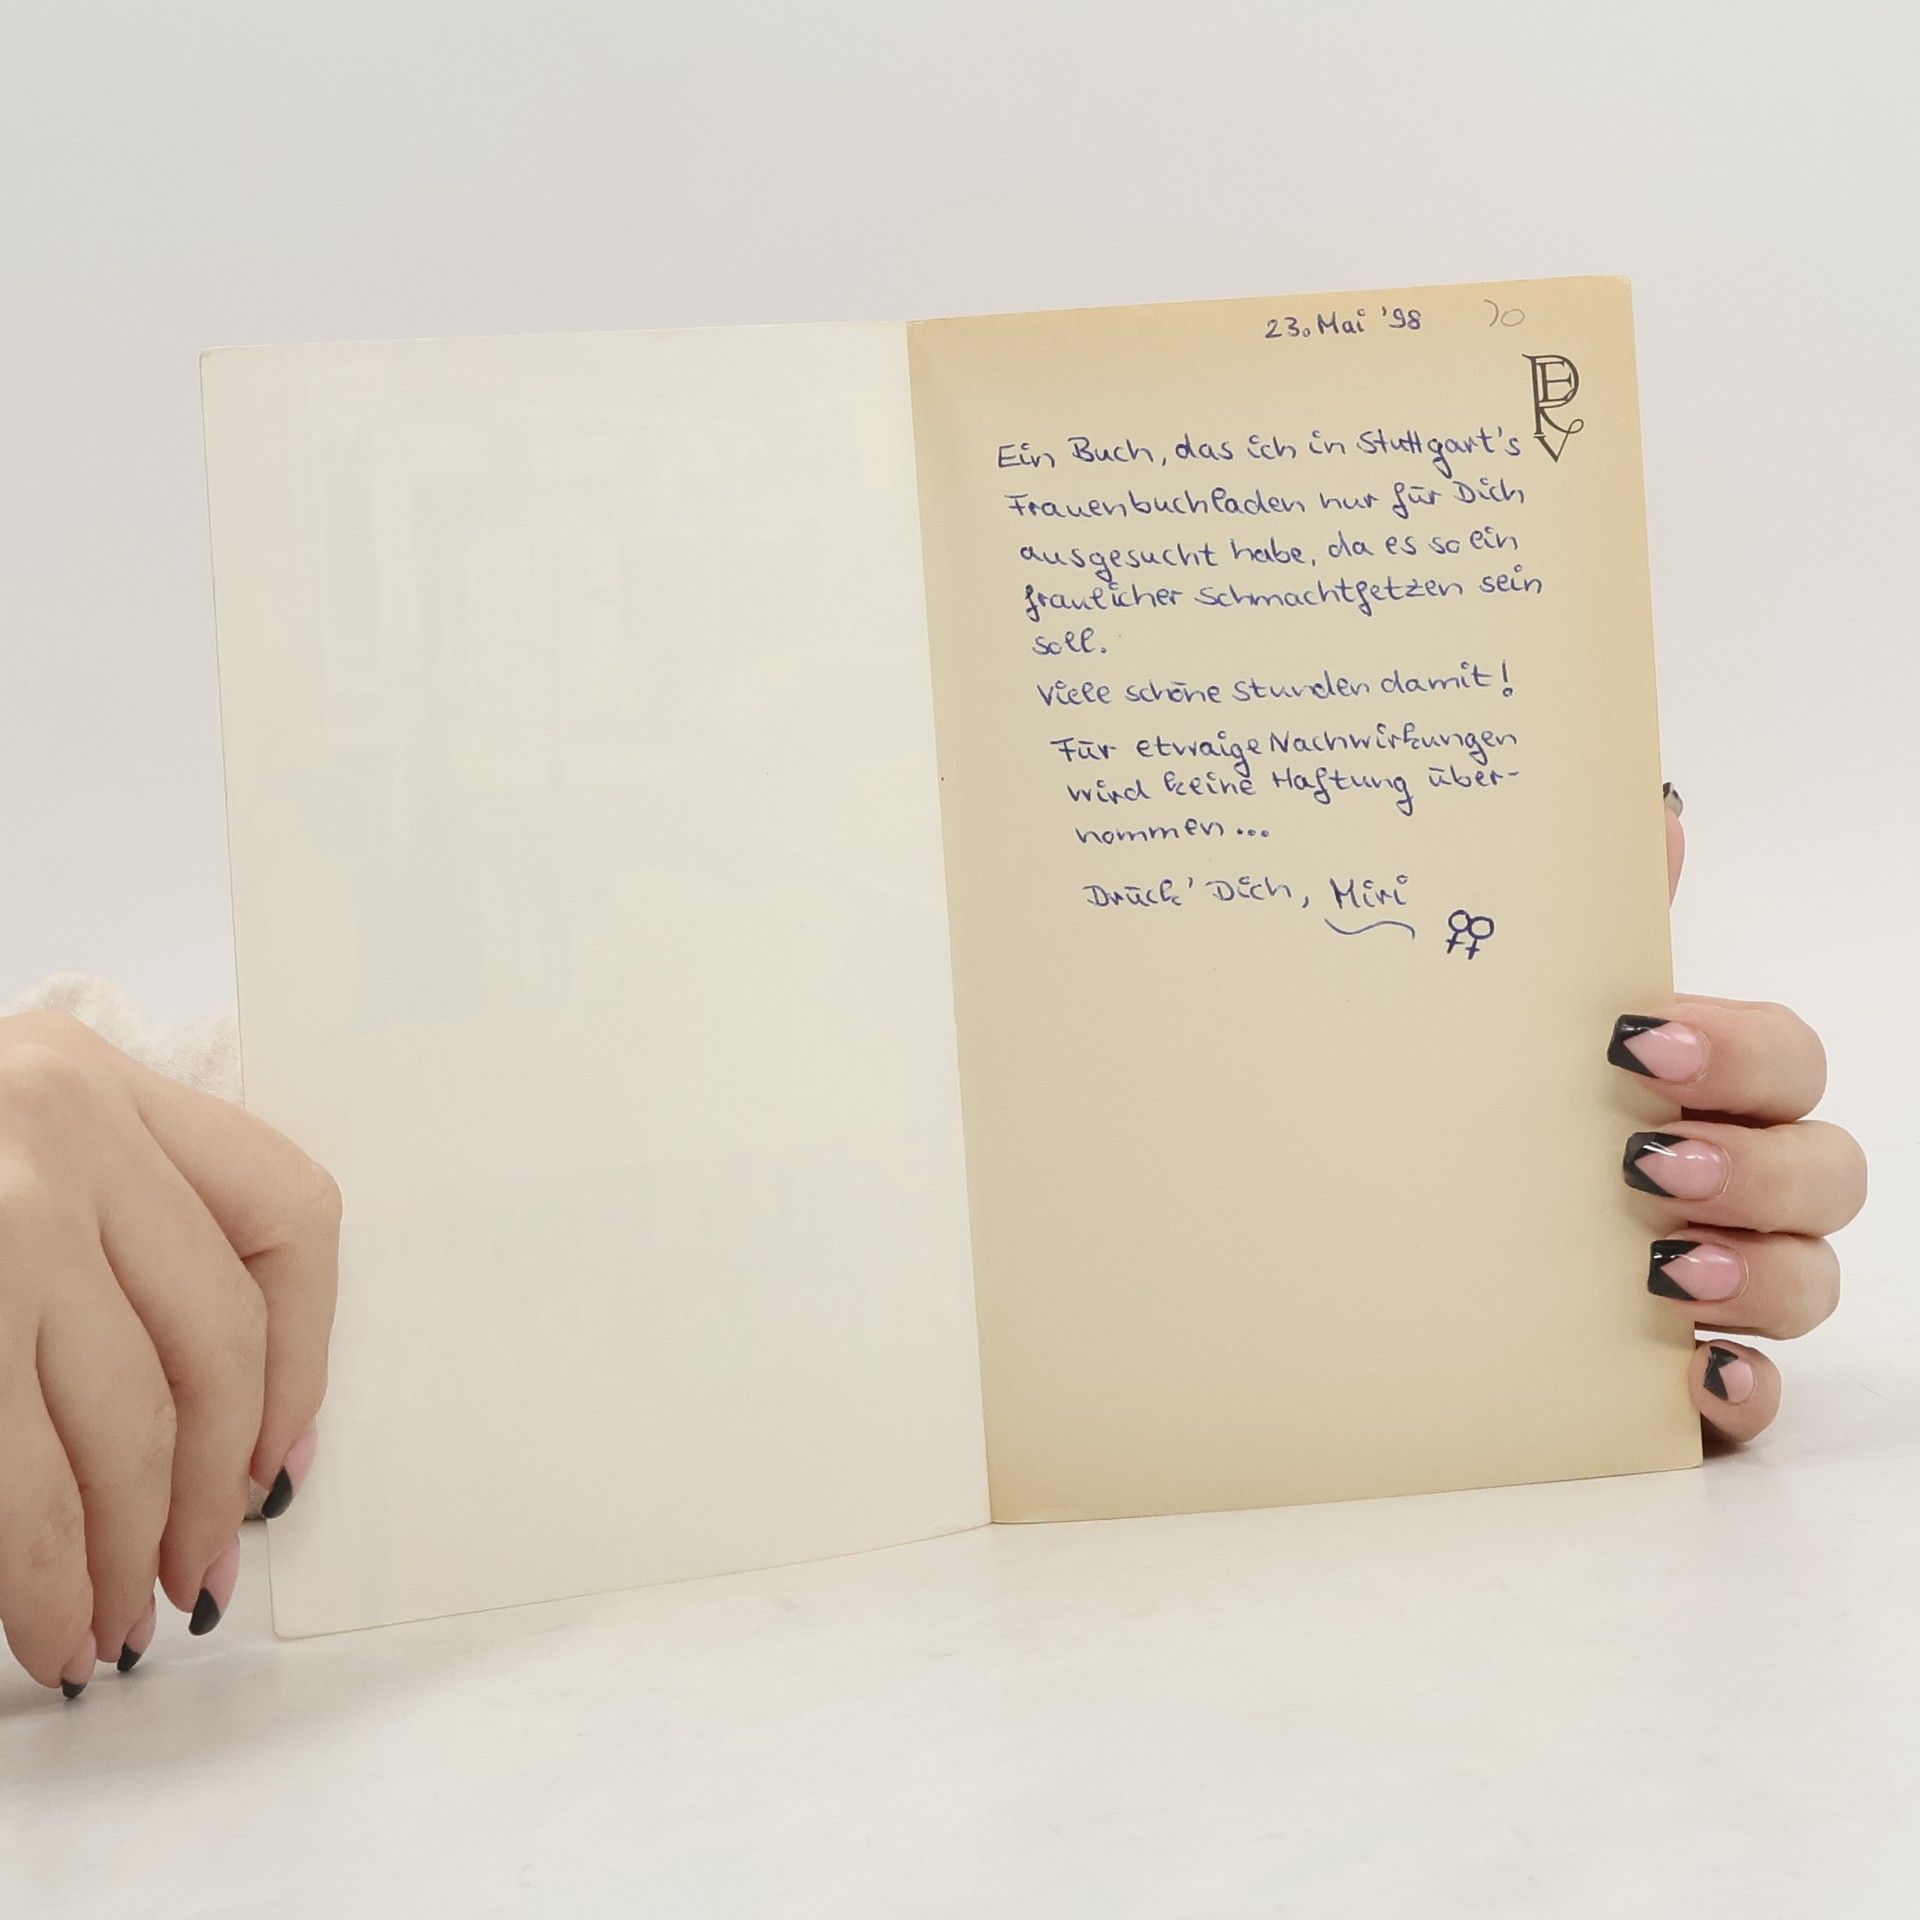 23. Mai '98
Ein Buch, das ich in Stuttgart's
Frauenbuchladen nur für Dich
ausgesucht habe, da es so ein
fraulicher Schmachtfetzen sein
soll.
Viele schöne Stunden damit!
Für etwaige Nachwirkungen
wird keine Haftung über-
nommen...
Drück' Dich, Miri